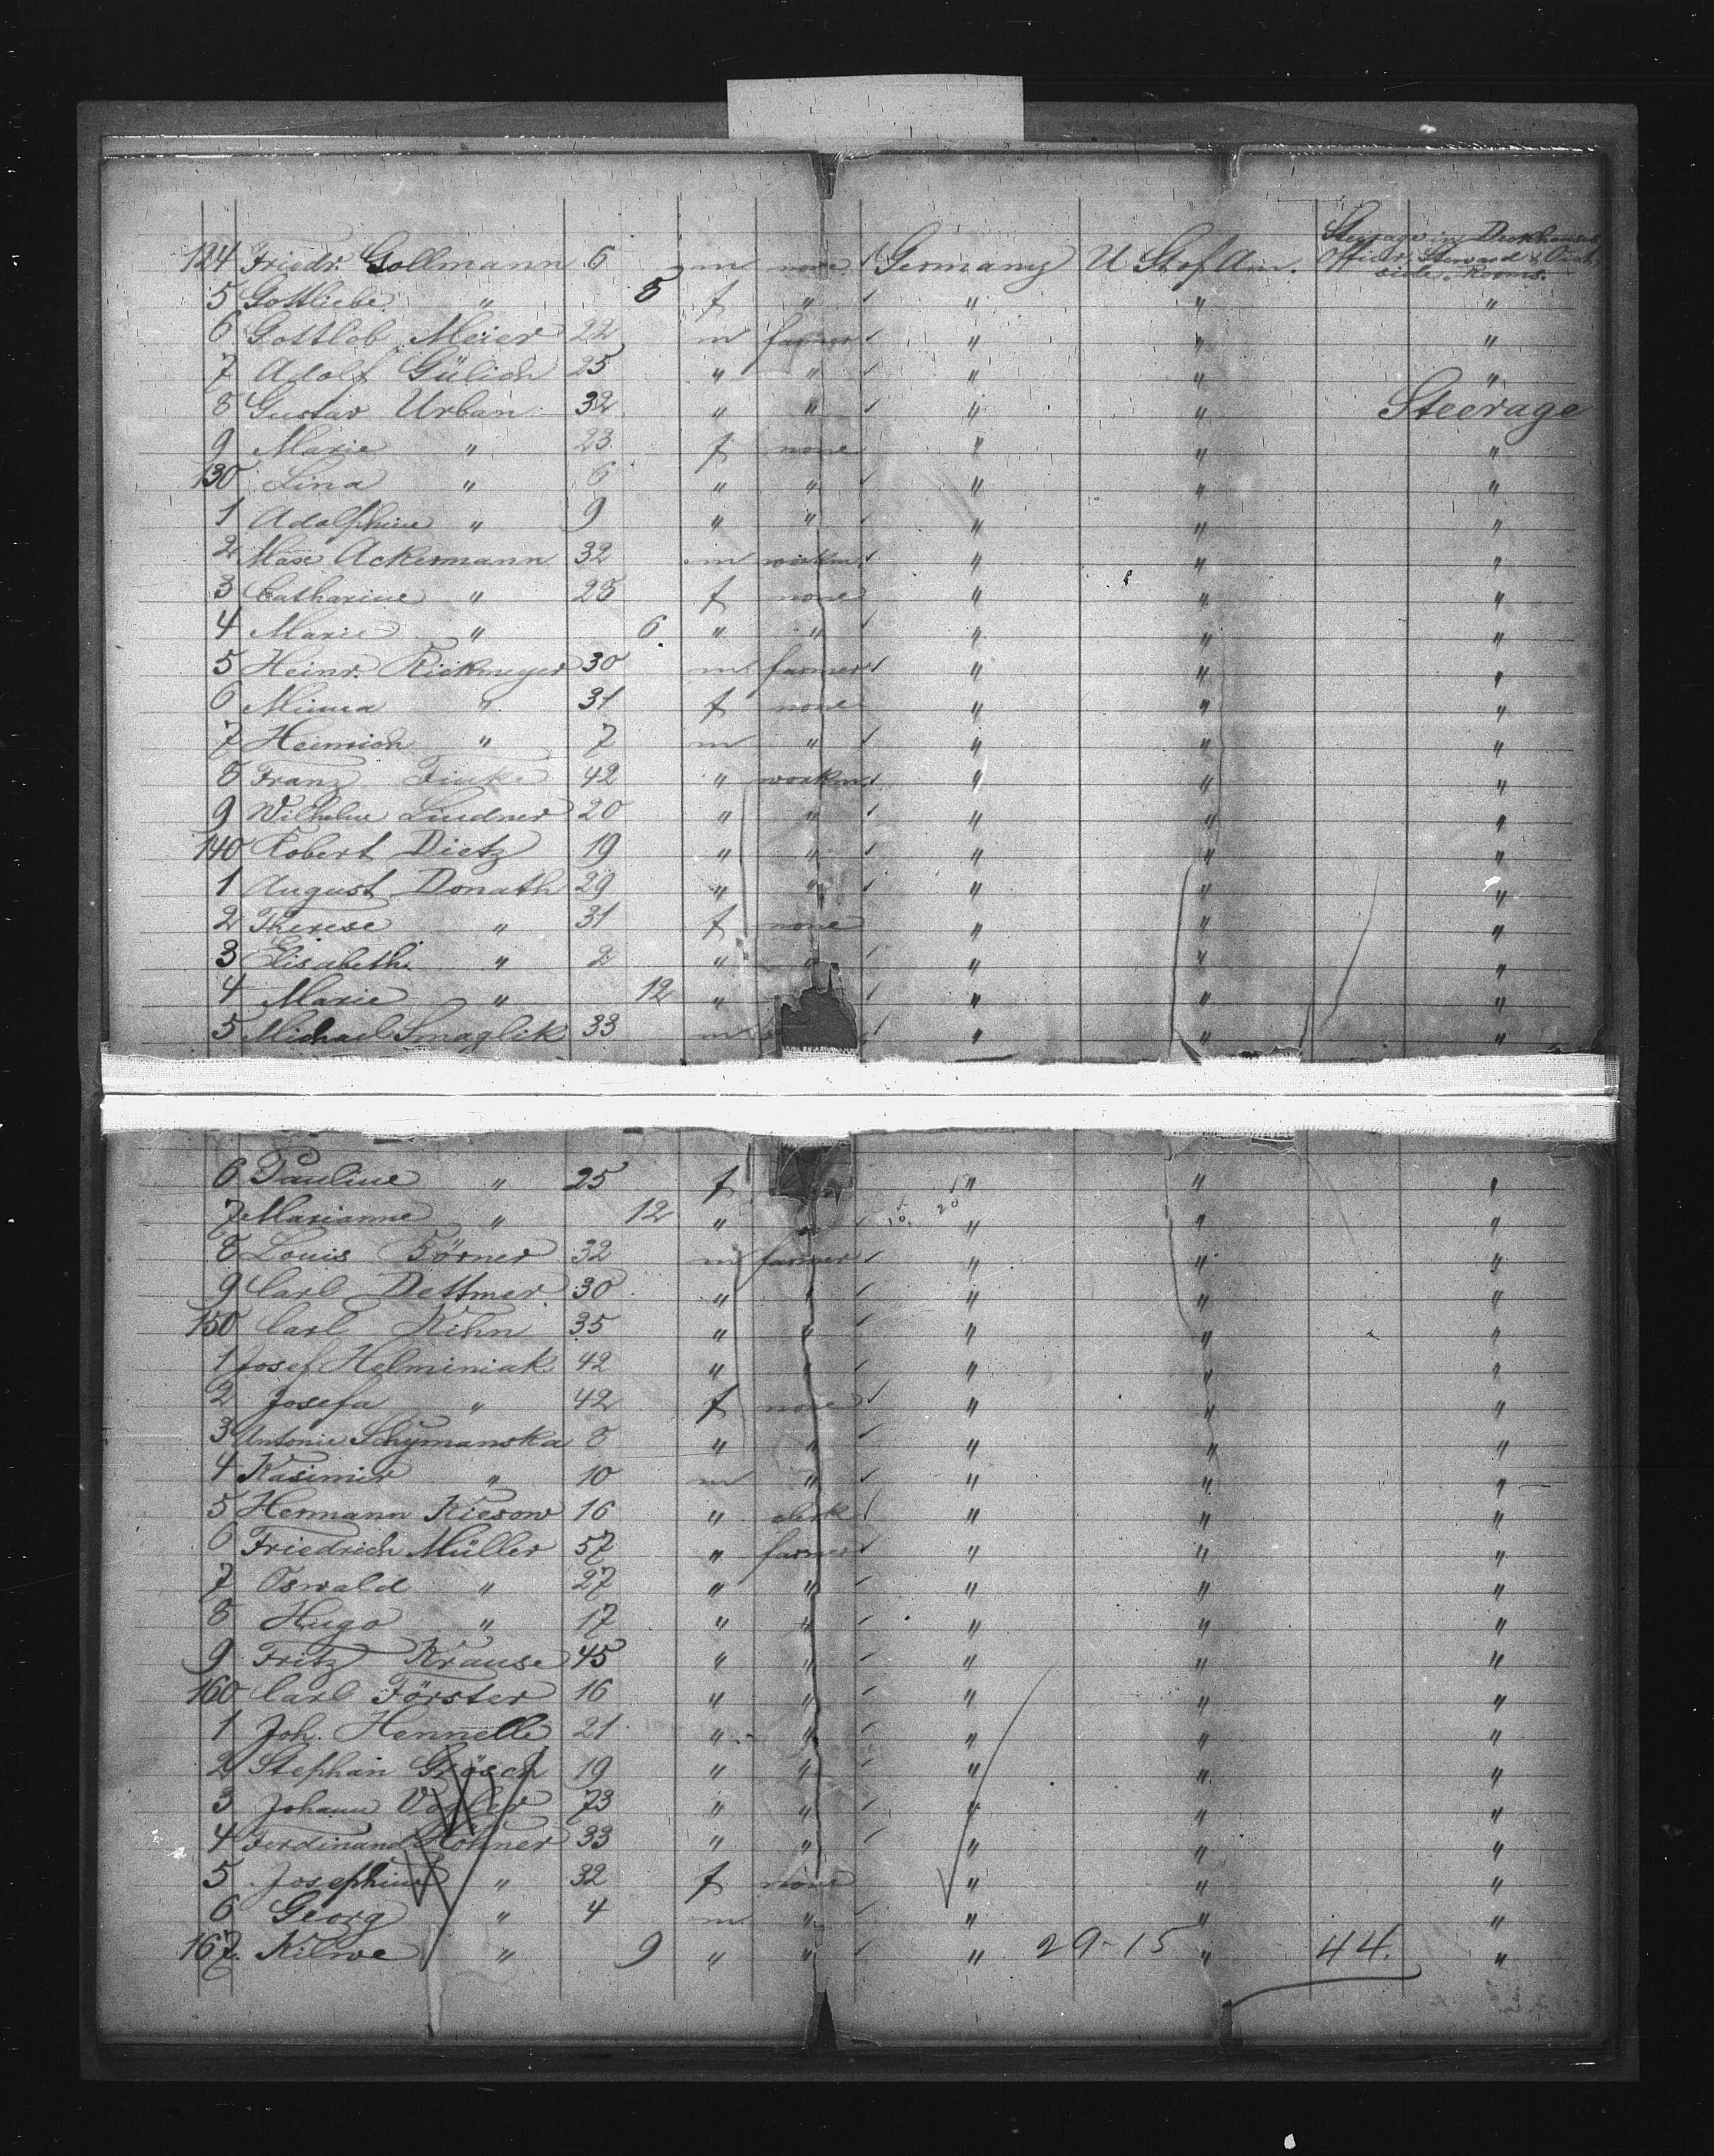 124 Friedr. Gollmann 6 m none Germany U St of Am. Steerage in Deckhouses, Officer, Steward &
5 Gottliebe " 8 f " " " "
6 Gottlob Meier 22 m farmer " " "
7 Adolf Gülich 25 " " " " "
8 Gustav Urban 32 " " " " Steerage
9 Marie " 23 f none " " "
130 Lina " 6 " " " " "
1 Adolphine " 9 " " " " "
2 Max Ackermann 32 m workm. " " "
3 Catharine " 28 f none " " "
4 Marie " 6 " " " " "
5 Heinr. Rickmeyer 30 m farmer " " "
6 Minna " 31 f none " " "
7 Heinrich " 7 m " " " "
8 Franz Finke 42 " workm. " " "
9 Wilhelm Lindner 20 " " " " "
140 Robert Dietz 19 " " " " "
1 August Donath 29 " " " " "
2 Therese " 31 f none " " "
3 Elisabeth " 2 " " " " "
4 Marie " 12 " " " "
5 Michael Smaglik 33 m " " "
6 Pauline " 25 f " " "
7 Marianne " 12 " " " "
8 Louis Börner 32 m farmer " " "
9 Carl Dettmer 30 " " " " "
150 Carl Kihn 35 " " " " "
1 Josef Helminiak 42 " " " " "
2 Josefa " 42 f none " " "
3 Antonie Schymanska 8 " " " " "
4 Kasimir " 10 m " " " "
5 Hermann Kiesow 16 " clerk " " "
6 Friedrich Müller 57 " farmer " " "
7 Oswald " 27 " " " " "
8 Hugo " 17 " " " " "
9 Fritz Krause 45 " " " " "
160 Carl Förster 16 " " " " "
1 Joh. Hennelle 21 " " " " "
2 Stephan Grösch 19 " " " " "
3 Johann Vogler 73 " " " " "
4 Ferdinand Höhner 33 " " " " "
5 Josephine " 32 f none " " "
6 Georg " 4 m " " " "
167. " 9 " " " 29-15 " 44. "